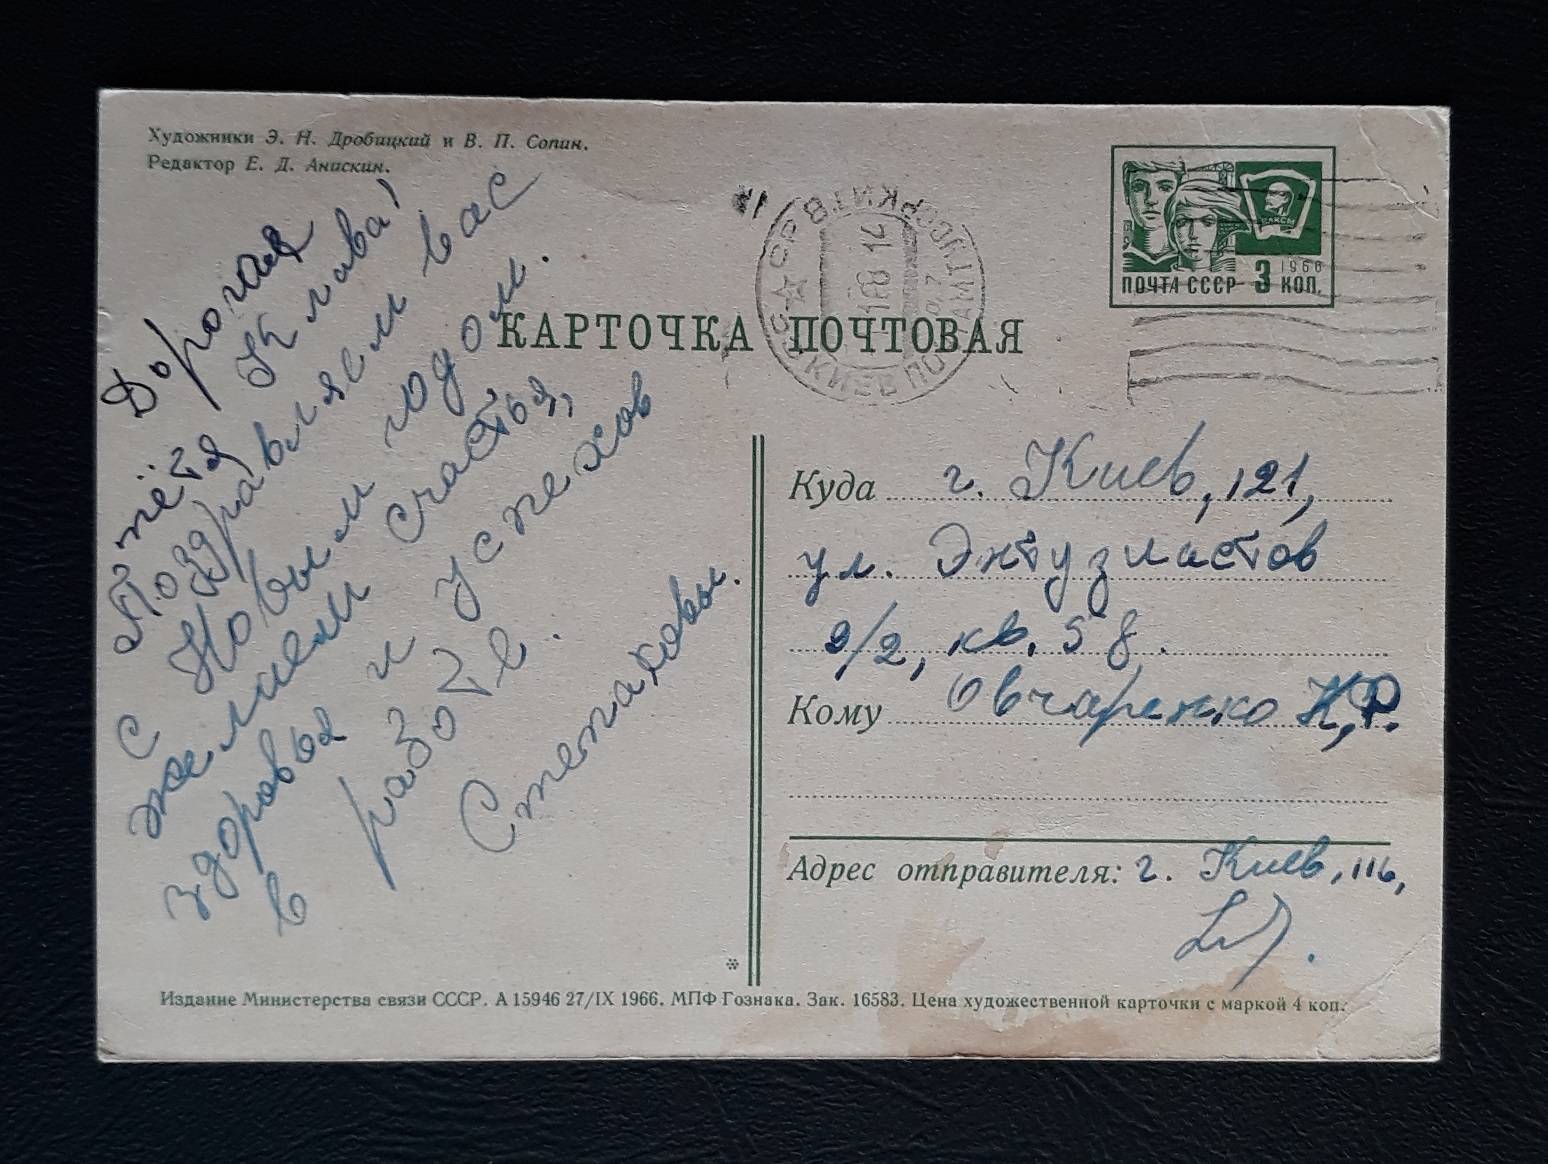 Художники Э. Н. Дробицкий и В. П. Сопин.
Редактор Е. Д. Анискин.
Дорогая
тётя Клава!
Поздравляем вас
с Новым годом.
желаем счастья,
здоровья и успехов
в работе.
Степаховы.
КАРТОЧКА ПОЧТОВАЯ
ПОЧТА СССР 3 КОП.
1966
КИЕВ
Куда г. Киев, 121,
ул. Энтузиастов
9/2, кв. 58.
Кому Овчаренко К,Р.
Адрес отправителя: г. Киев, 116,
*
Издание Министерства связи СССР. А 15946 27/IX 1966. МПФ Гознака. Зак. 16583. Цена художественной карточки с маркой 4 коп.